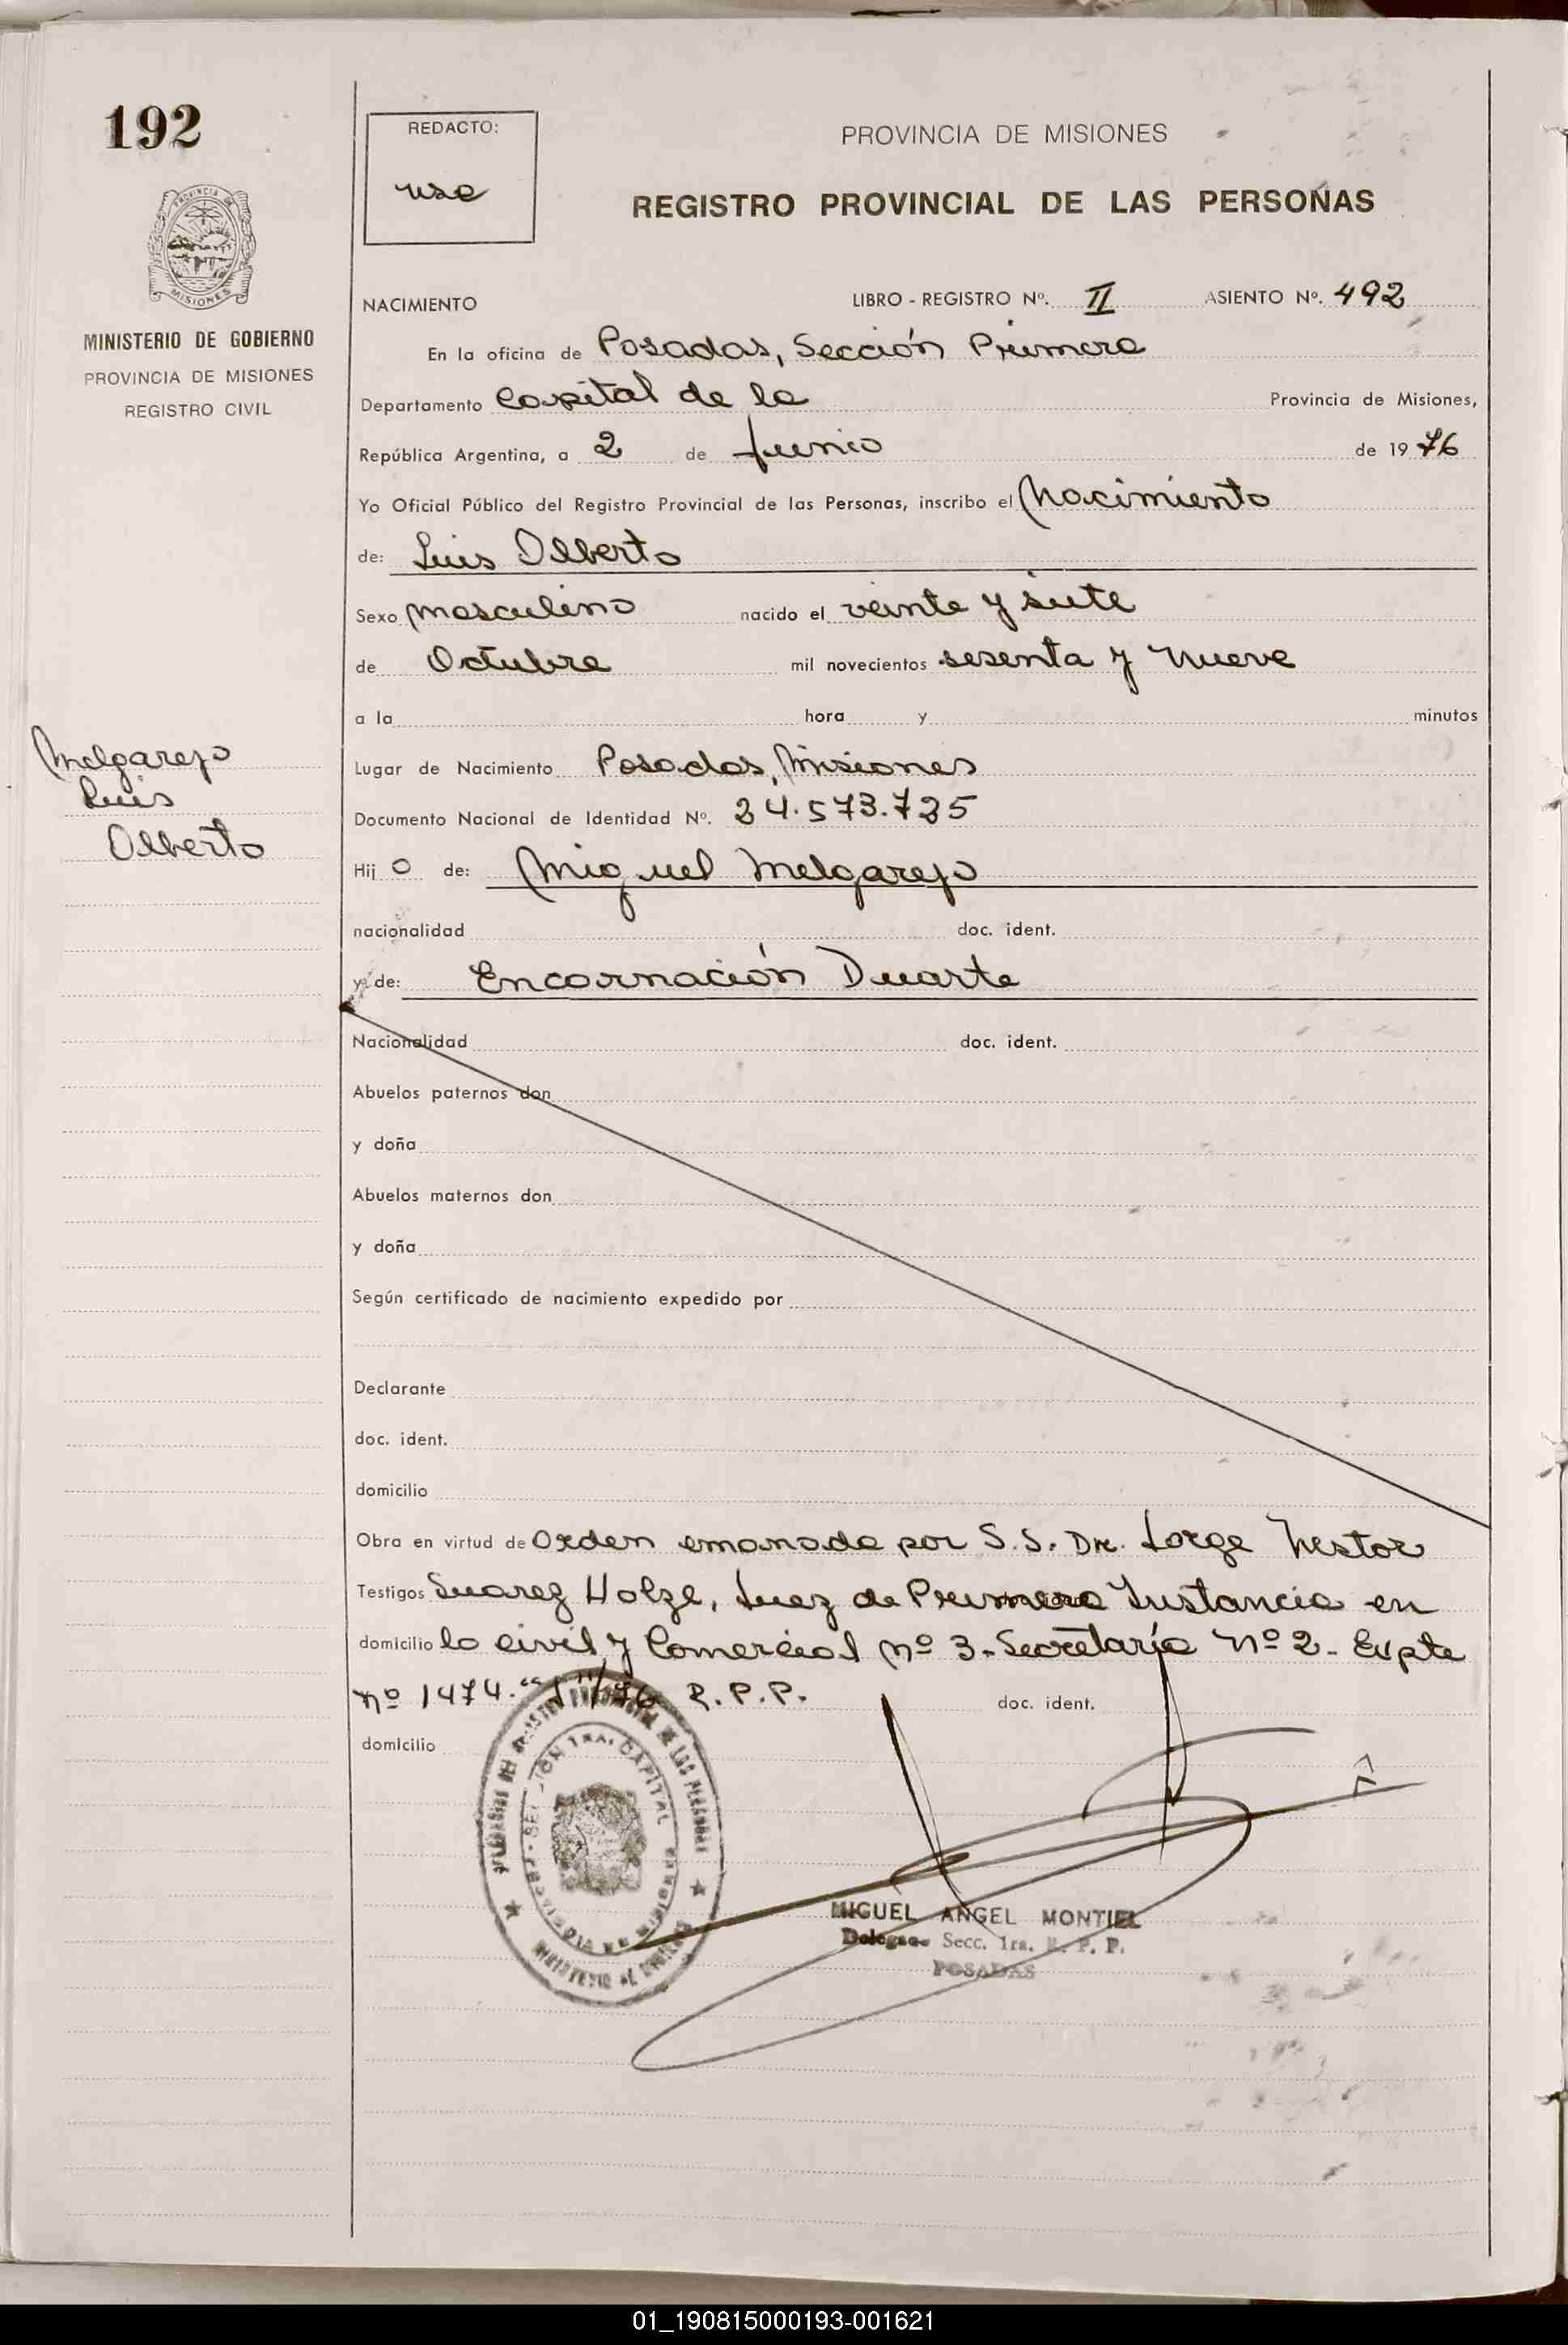 192
REDACTO:
use
PROVINCIA DE MISIONES
REGISTRO PROVINCIAL DE LAS PERSONAS
MINISTERIO DE GOBIERNO
PROVINCIA DE MISIONES
REGISTRO CIVIL
NACIMIENTO LIBRO - REGISTRO Nº. II ASIENTO Nº. 492
En la oficina de Posadas, Sección Primera
Departamento Capital de la Provincia de Misiones,
República Argentina, a 2 de Junio de 1976
Yo Oficial Público del Registro Provincial de las Personas, inscribo el Nacimiento
de: Luis Alberto
Sexo masculino nacido el veinte y siete
de Octubre mil novecientos sesenta y nueve
a la hora y minutos
Melgarejo
Luis
Alberto
Lugar de Nacimiento Posadas, Misiones
Documento Nacional de Identidad Nº. 24.573.735
Hij o de: Miguel Melgarejo
nacionalidad doc. ident.
y de: Encarnación Duarte
Nacionalidad doc. ident.
Abuelos paternos don
y doña
Abuelos maternos don
y doña
Según certificado de nacimiento expedido por
Declarante
doc. ident.
domicilio
Obra en virtud de Orden emanada por S.S. Dr. Jorge Nestor
Testigos Suarez Holze, Juez de Primera Instancia en
domicilio lo Civil y Comercial Nº 3. Secretaría Nº 2. Expte
nº 1474. /76 R.P.P. doc. ident.
domicilio
MIGUEL ANGEL MONTIEL
Delegado Secc. 1ra. R. P. P.
POSADAS
01_190815000193-001621